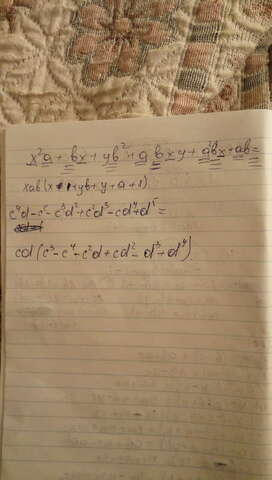 x²a + bx + yb² + abxy + a²bx + ab =
xab(x + 1 + yb + y + a + 1)
c⁴d - c⁵ - c³d² + c²d³ - cd⁴ + d⁵ =
cd(c³ - c⁴ - c²d + cd² - d³ + d⁴)